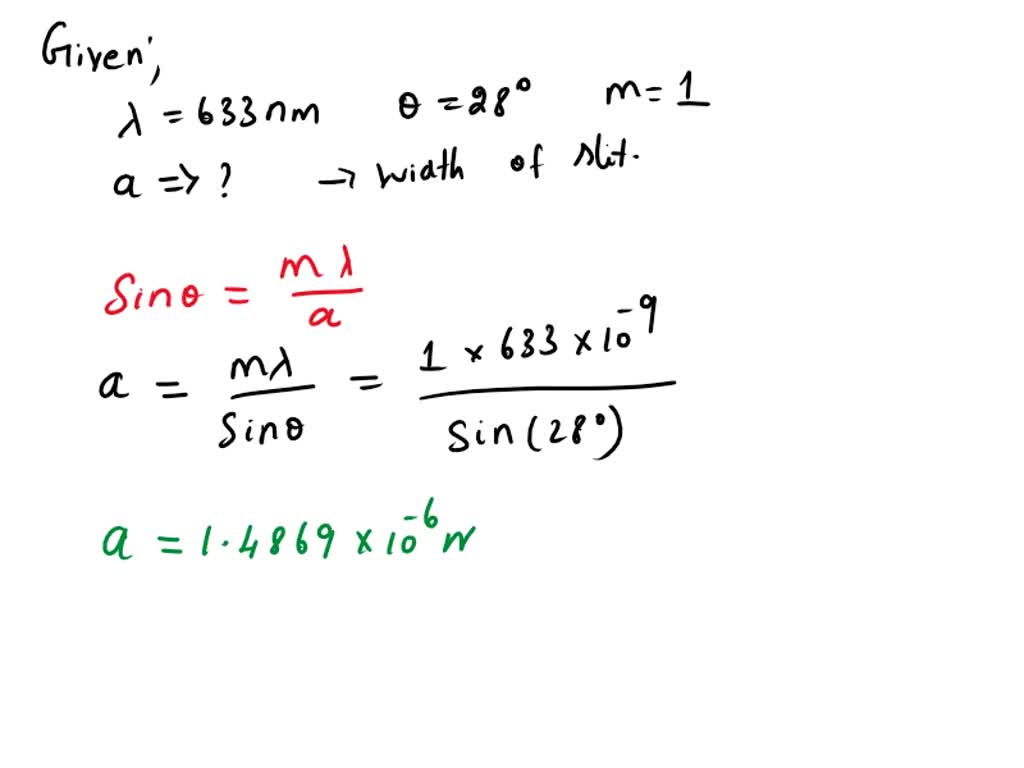 Given;
λ = 633 nm θ = 28° m = 1
a => ? → width of slit.
Sinθ = mλ / a
a = mλ / Sinθ = 1 × 633 × 10⁻⁹ / Sin (28°)
a = 1.4869 × 10⁻⁶ m